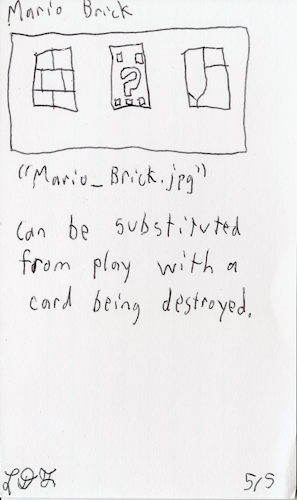 Mario Brick
?
"Mario_Brick.jpg"
Can be substituted
from play with a
card being destroyed.
5/5